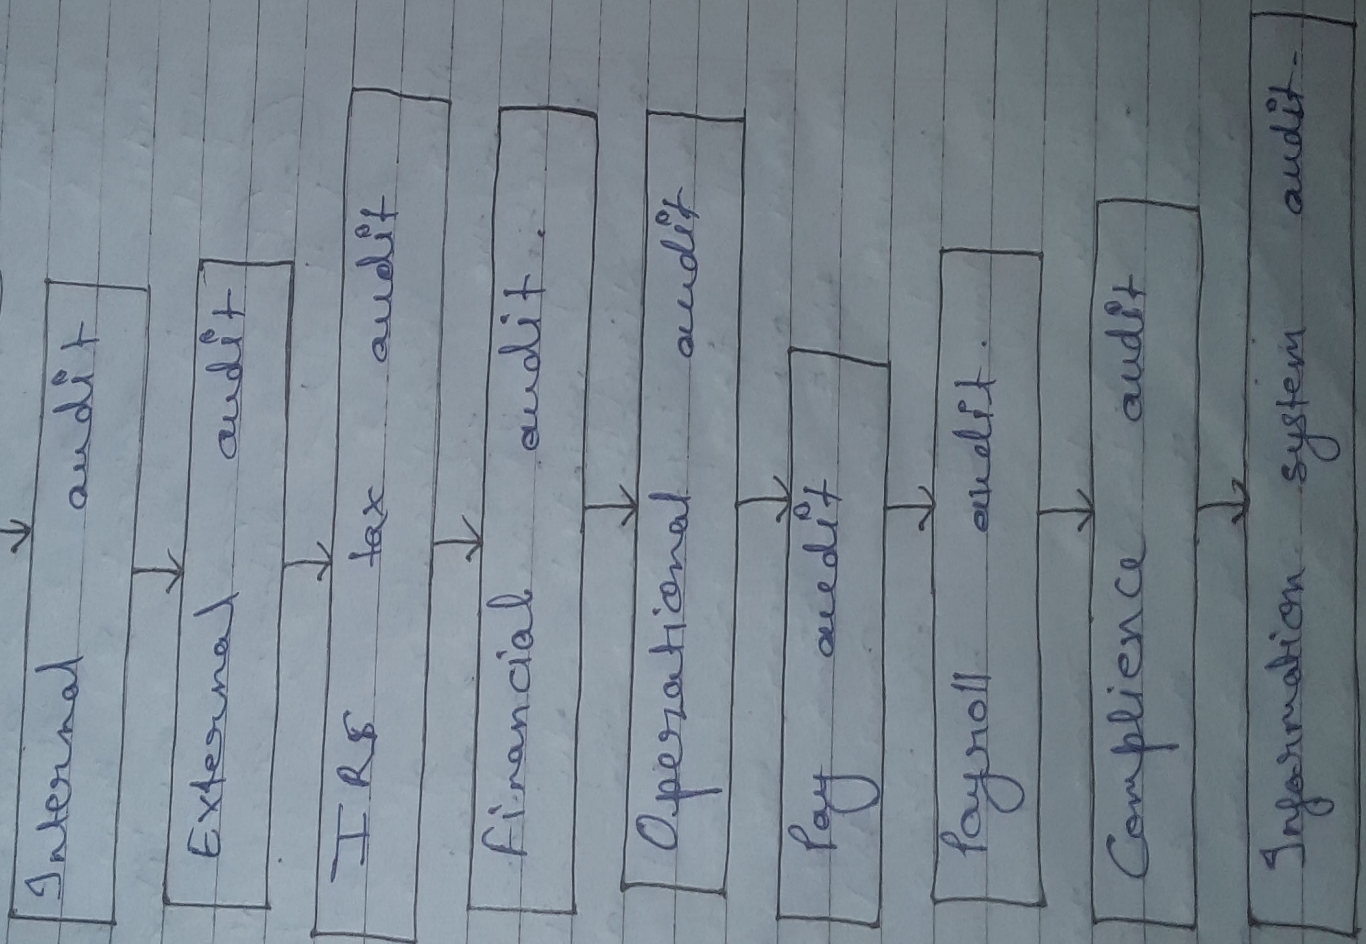 Internal audit
External audit
IRS tax audit
Financial audit.
Operational audit
Pay audit
Payroll audit.
Complience audit
Information system audit.